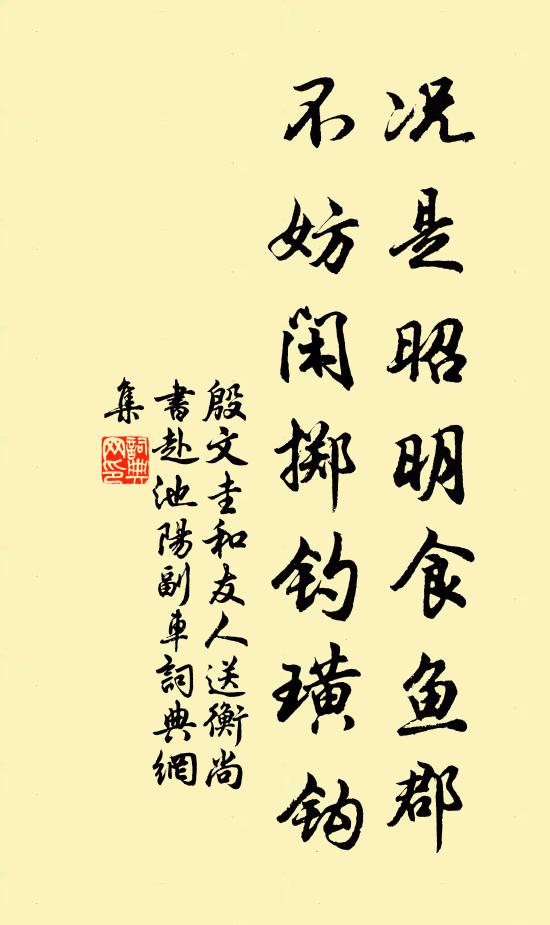 况是昭明食鱼郡
不妨闲掷钓璜钩
殷文圭和友人送衡尚
書赴池陽副車詞典網
集
詞典網印